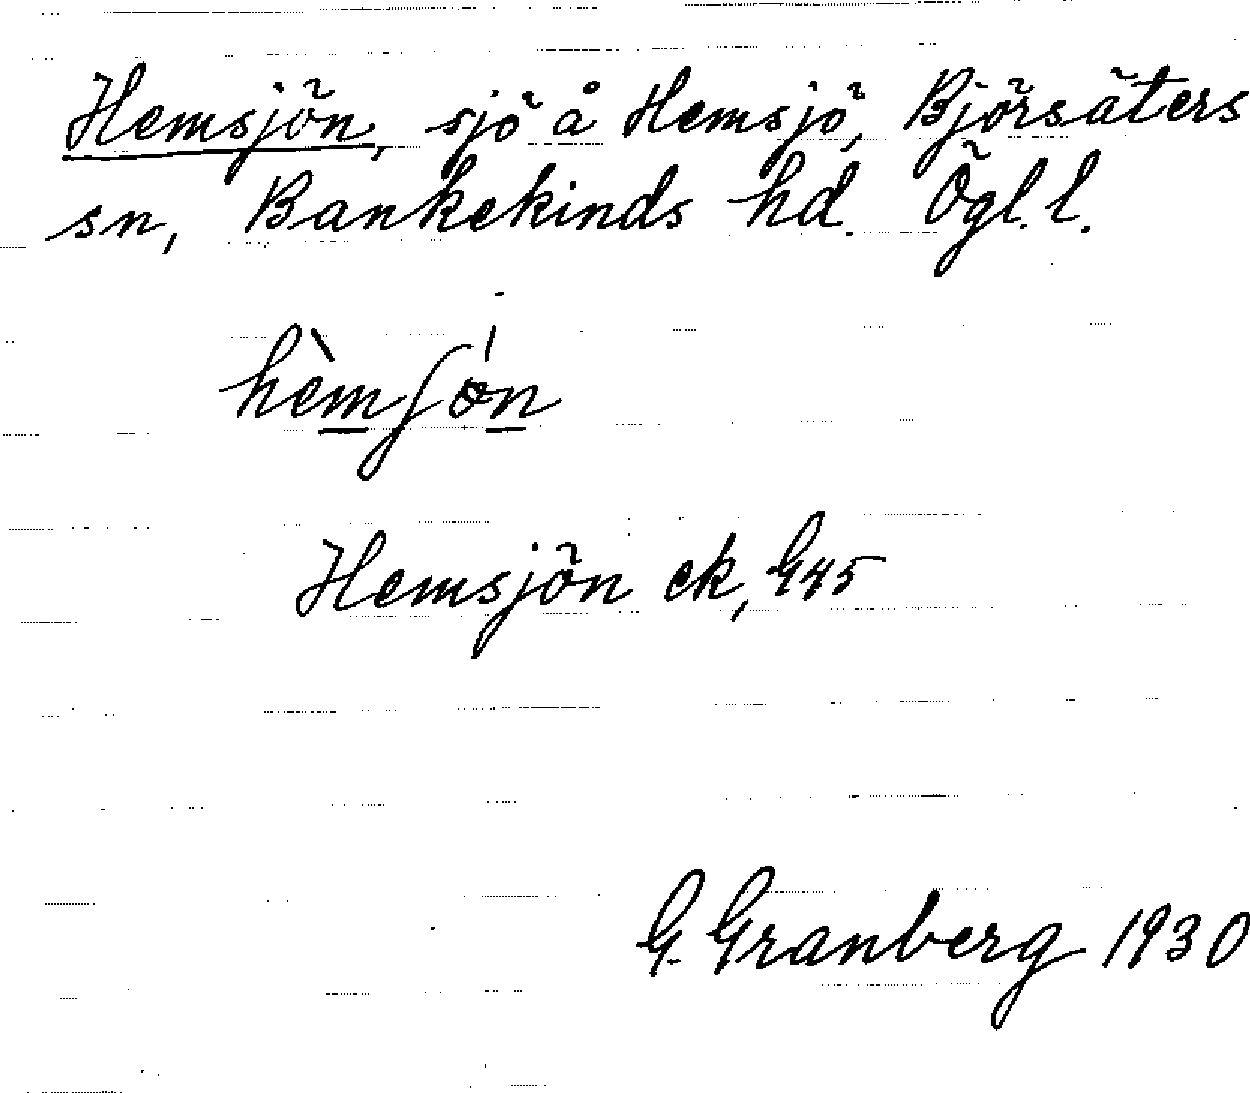 Hemsjön, sjö å Hemsjö, Björsäters
sn, Bankekinds hd. Ögl. l.
hèmʃön
Hemsjön ek, G45
G. Granberg 1930